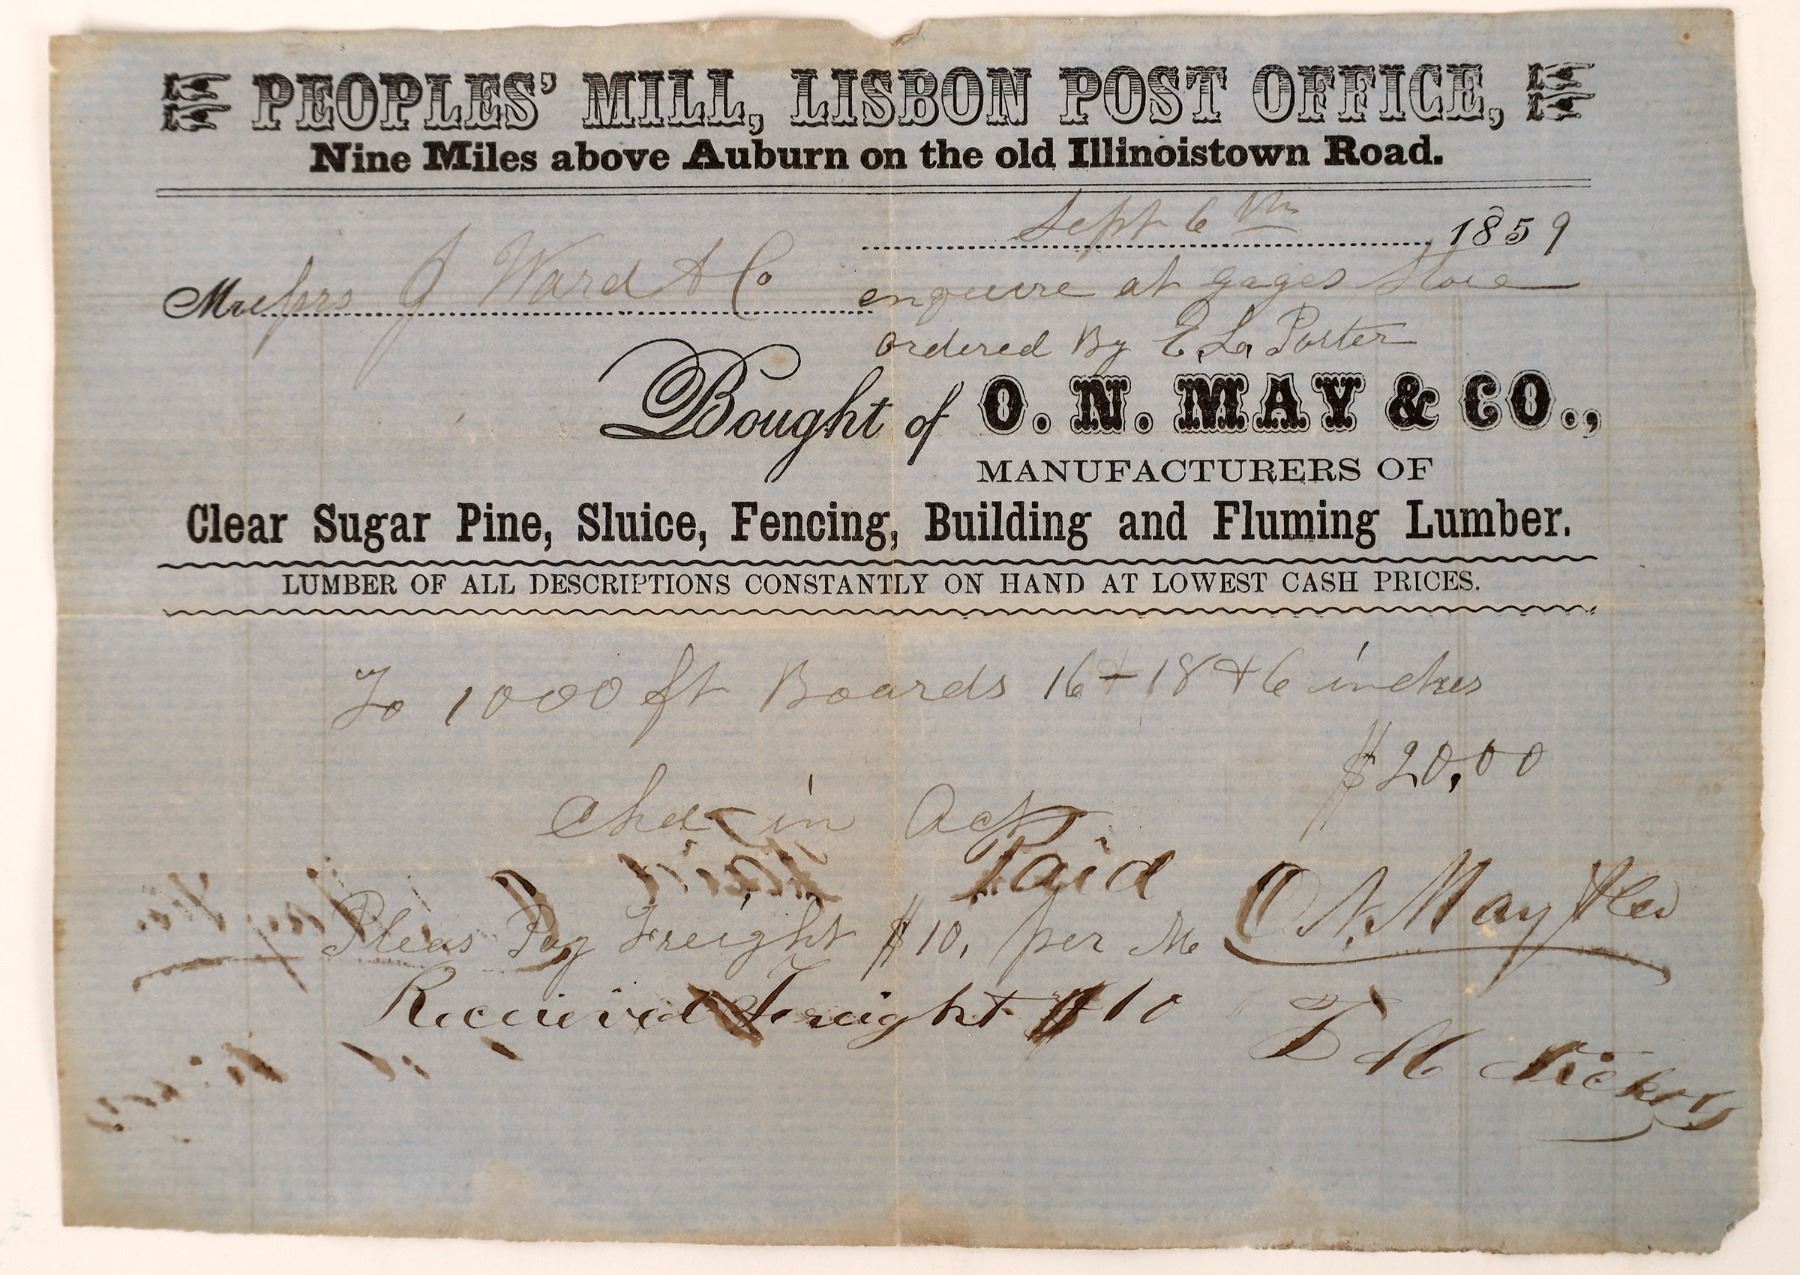 PEOPLES' MILL, LISBON POST OFFICE,
Nine Miles above Auburn on the old Illinoistown Road.
Sept 6th 1859
Messrs J Ward & Co enquire at gages Store
ordered By E. La Porter
Bought of O. N. MAY & CO.,
MANUFACTURERS OF
Clear Sugar Pine, Sluice, Fencing, Building and Fluming Lumber.
LUMBER OF ALL DESCRIPTIONS CONSTANTLY ON HAND AT LOWEST CASH PRICES.
To 1000 ft Boards 16 + 18 + 6 inches
$20,00
Chd in Act
Paid
O. N. May & Co
Pleas Pay Freight $10, per M
Received Freight $10